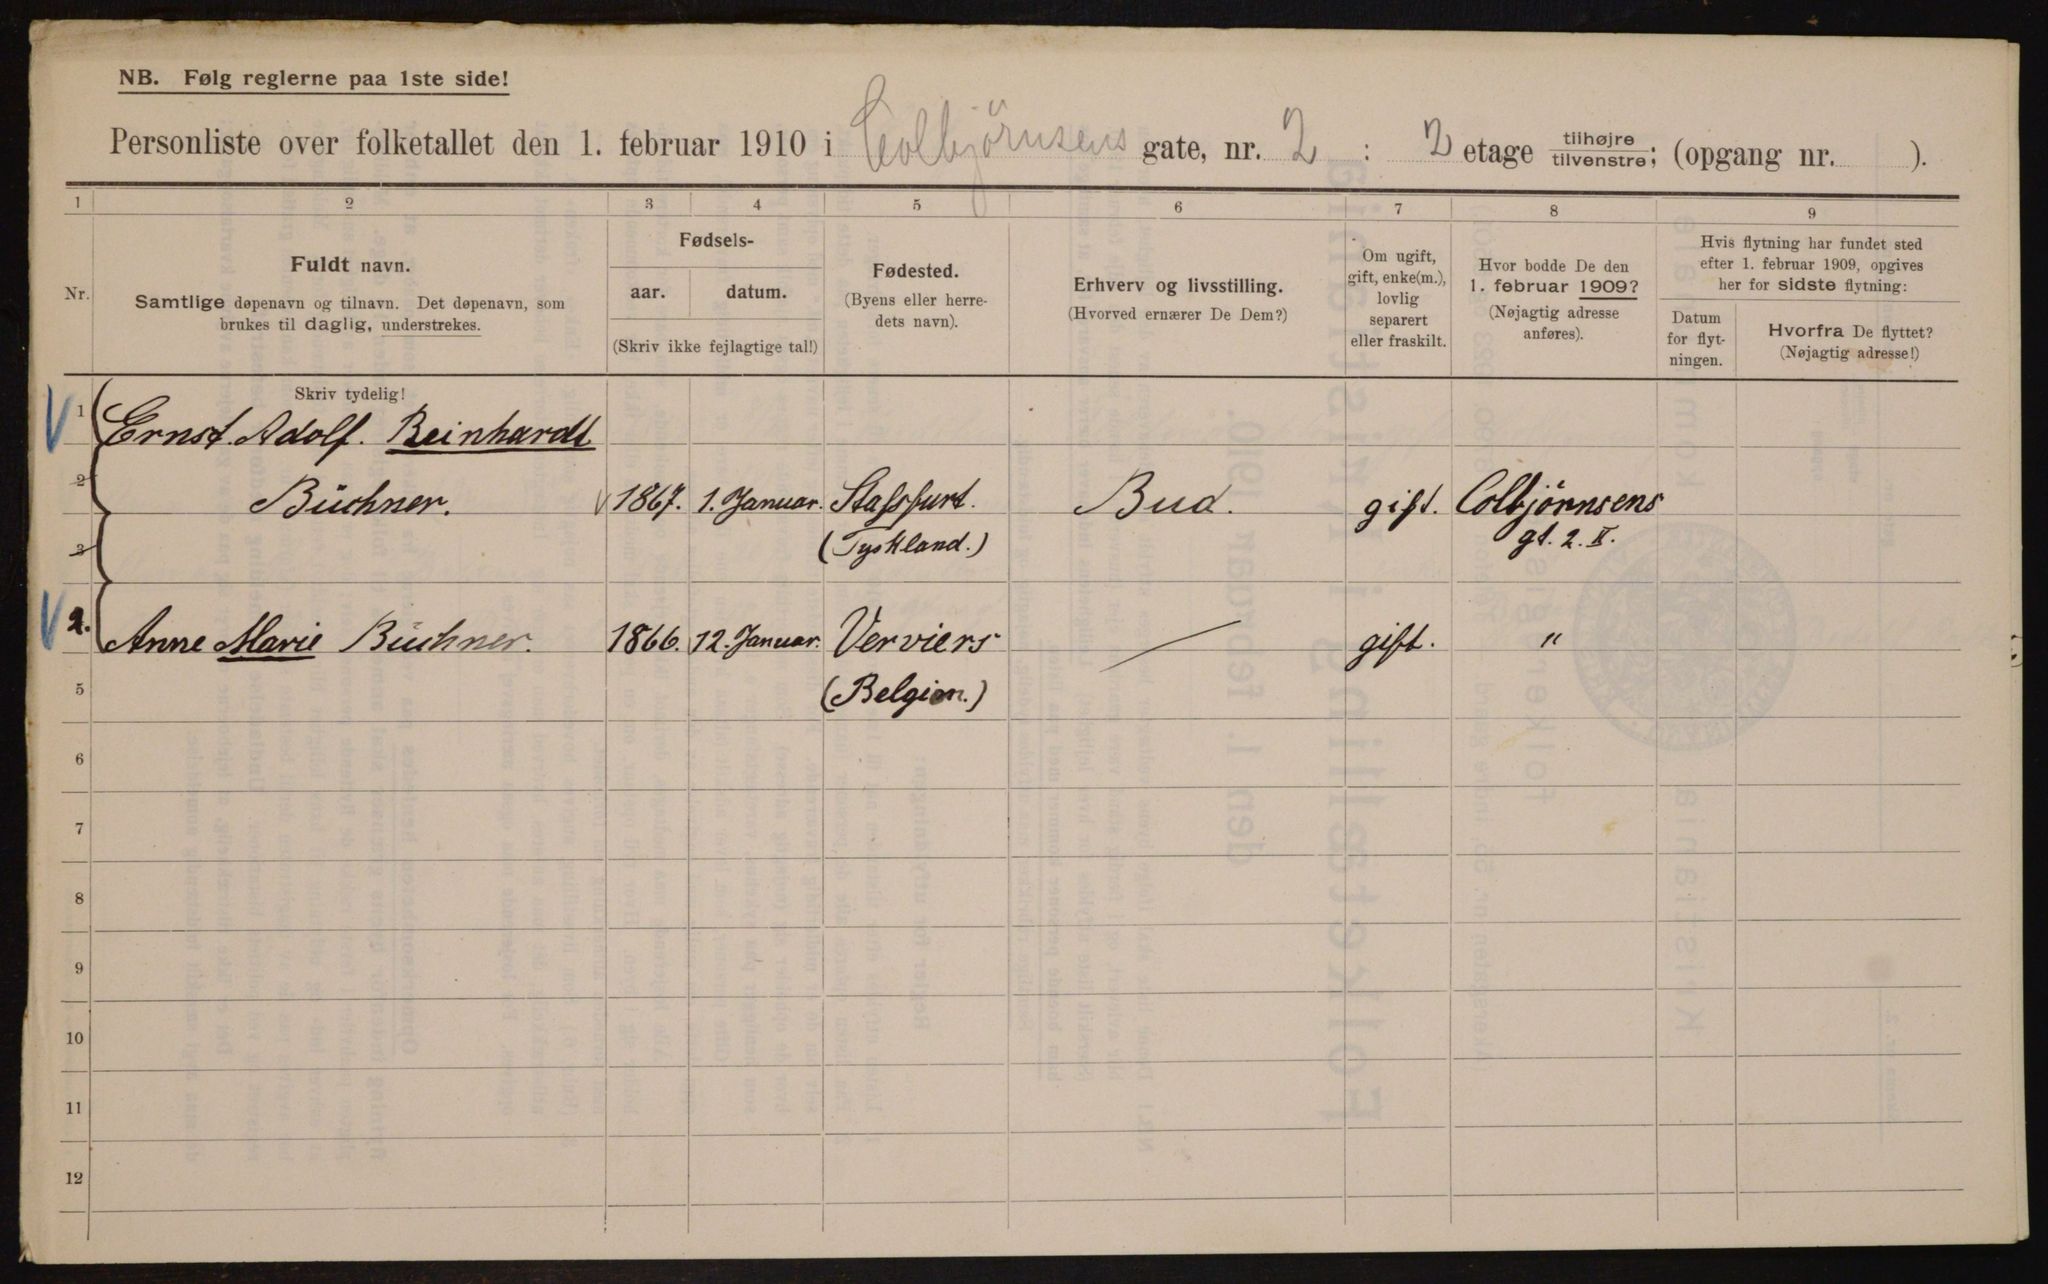 NB. Følg reglerne paa 1ste side!
Personliste over folketallet den 1. februar 1910 i Colbjørnsens gate, nr. 2 : 2 etage tilhøjre/tilvenstre; (opgang nr. ).
1 2 3 4 5 6 7 8 9
Nr.
Fuldt navn.
Samtlige døpenavn og tilnavn. Det døpenavn, som
brukes til daglig, understrekes.
Skriv tydelig!
Fødsels-
aar. datum.
(Skriv ikke fejlagtige tal!)
Fødested.
(Byens eller herre-
dets navn).
Erhverv og livsstilling.
(Hvorved ernærer De Dem?)
Om ugift,
gift, enke(m.),
lovlig
separert
eller fraskilt.
Hvor bodde De den
1. februar 1909?
(Nøjagtig adresse
anføres).
Hvis flytning har fundet sted
efter 1. februar 1909, opgives
her for sidste flytning:
Datum
for flyt-
ningen.
Hvorfra De flyttet?
(Nøjagtig adresse!)
1 Ernst Adolf. Reinhardt
2 Büchner. 1867. 1. Januar. Stassfurt. Bud. gift. Colbjörnsens
3 (Tyskland.) gt. 2. II.
2. Anne Marie Büchner. 1866. 12. Januar. Verviers — gift. "
5 (Belgien.)
6
7
8
9
10
11
12